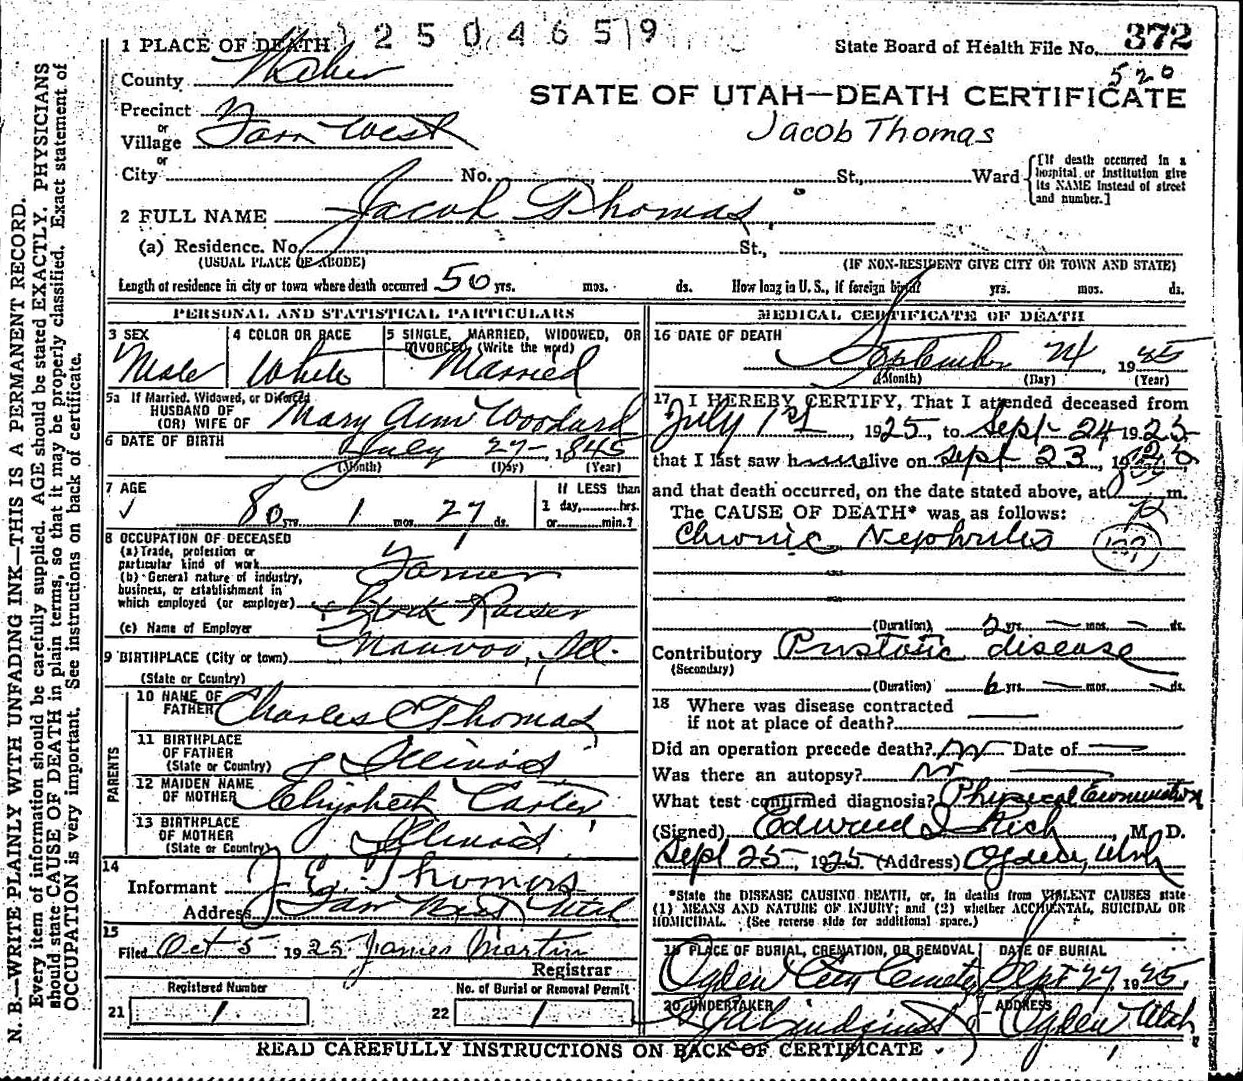 1250465 9
1 PLACE OF DEATH
State Board of Health File No. 372
County Weber
520
STATE OF UTAH—DEATH CERTIFICATE
Precinct
or
Village Farr West
Jacob Thomas
or
City No. St., Ward
[If death occurred in a hospital or institution give its NAME instead of street and number.]
2 FULL NAME Jacob Thomas
(a) Residence. No. St.,
(USUAL PLACE OF ABODE) (IF NON-RESIDENT GIVE CITY OR TOWN AND STATE)
Length of residence in city or town where death occurred 50 yrs. mos. ds. How long in U. S., if foreign birth? yrs. mos. ds.
PERSONAL AND STATISTICAL PARTICULARS
3 SEX 4 COLOR OR RACE 5 SINGLE, MARRIED, WIDOWED, OR DIVORCED (Write the word)
Male White Married
5a If Married, Widowed, or Divorced
HUSBAND OF
(OR) WIFE OF Mary Ann Woodard
6 DATE OF BIRTH July 27- 1845
(Month) (Day) (Year)
7 AGE
80 yrs. 1 mos. 27 ds.
If LESS than
1 day, hrs.
or min.?
8 OCCUPATION OF DECEASED
(a) Trade, profession or
particular kind of work Farmer
(b) General nature of industry,
business, or establishment in
which employed (or employer) Stock Raiser
(c) Name of Employer
9 BIRTHPLACE (City or town) Nauvoo, Ill.
(State or Country)
PARENTS
10 NAME OF
FATHER Charles C Thomas
11 BIRTHPLACE
OF FATHER
(State or Country) Illinois
12 MAIDEN NAME
OF MOTHER Elizabeth Carter
13 BIRTHPLACE
OF MOTHER
(State or Country) Illinois
14
Informant J E Thomas
Address Farr West Utah
15
Filed Oct 5 1925 James Martin
Registrar
Registered Number No. of Burial or Removal Permit
21 1 22 1
MEDICAL CERTIFICATE OF DEATH
16 DATE OF DEATH
September 24, 1925
(Month) (Day) (Year)
17 I HEREBY CERTIFY, That I attended deceased from
July 1st, 1925, to Sept 24 1925
that I last saw him alive on Sept 23, 1925
and that death occurred, on the date stated above, at m.
The CAUSE OF DEATH* was as follows:
Chronic Nephritis
(Duration) 2 yrs. — mos. — ds.
Contributory Prostatic disease
(Secondary)
(Duration) 6 yrs. — mos. — ds.
18 Where was disease contracted
if not at place of death?
Did an operation precede death? no Date of —
Was there an autopsy? no
What test confirmed diagnosis? Physical Examination
(Signed) Edward I Rich, M. D.
Sept 25, 1925 (Address) Ogden, Utah
*State the DISEASE CAUSING DEATH, or, in deaths from VIOLENT CAUSES state
(1) MEANS AND NATURE OF INJURY; and (2) whether ACCIDENTAL, SUICIDAL OR
HOMICIDAL. (See reverse side for additional space.)
19 PLACE OF BURIAL, CREMATION, OR REMOVAL DATE OF BURIAL
Ogden City Cemetery Sept 27, 1925
20 UNDERTAKER ADDRESS
Lindquist Ogden, Utah
READ CAREFULLY INSTRUCTIONS ON BACK OF CERTIFICATE
N. B.—WRITE PLAINLY WITH UNFADING INK—THIS IS A PERMANENT RECORD.
Every item of information should be carefully supplied. AGE should be stated EXACTLY. PHYSICIANS
should state CAUSE OF DEATH in plain terms, so that it may be properly classified. Exact statement of
OCCUPATION is very important. See instructions on back of certificate.